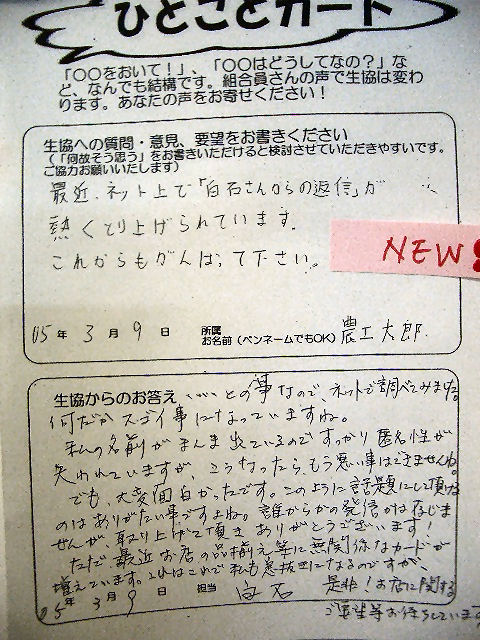 ひとことカード
「〇〇をおいて！」、「〇〇はどうしてなの？」な
ど、なんでも結構です。組合員さんの声で生協は変わ
ります。あなたの声をお寄せください！
生協への質問・意見、要望をお書きください
（「何故そう思う」をお書きいただけると検討させていただきやすいです。
ご協力お願いいたします）
最近、ネット上で「白石さんからの返信」が
熱くとり上げられています。
これからもがんばって下さい。
NEW
'05年 3月 9日
所属
お名前（ペンネームでもOK）農工太郎.
生協からのお答え との事なので、ネットで調べてみました。
何だかスゴイ事になっていますね。
私の名前がまんま出ているのですっかり匿名性が
失われていますが、こうなったら、もう悪い事はできませんね。
でも、大変面白かったです。このように話題にして頂け
のはありがたい事ですよね。誰からかの発信かは存じま
せんが取り上げて頂きありがとうございます！
ただ最近お店の品揃え等に無関係なカードが
増えています。これはこれで私も息抜きになるのですが、
'05年 3月 9日 担当 白石
是非！お店に関する
ご要望等お待ちしています